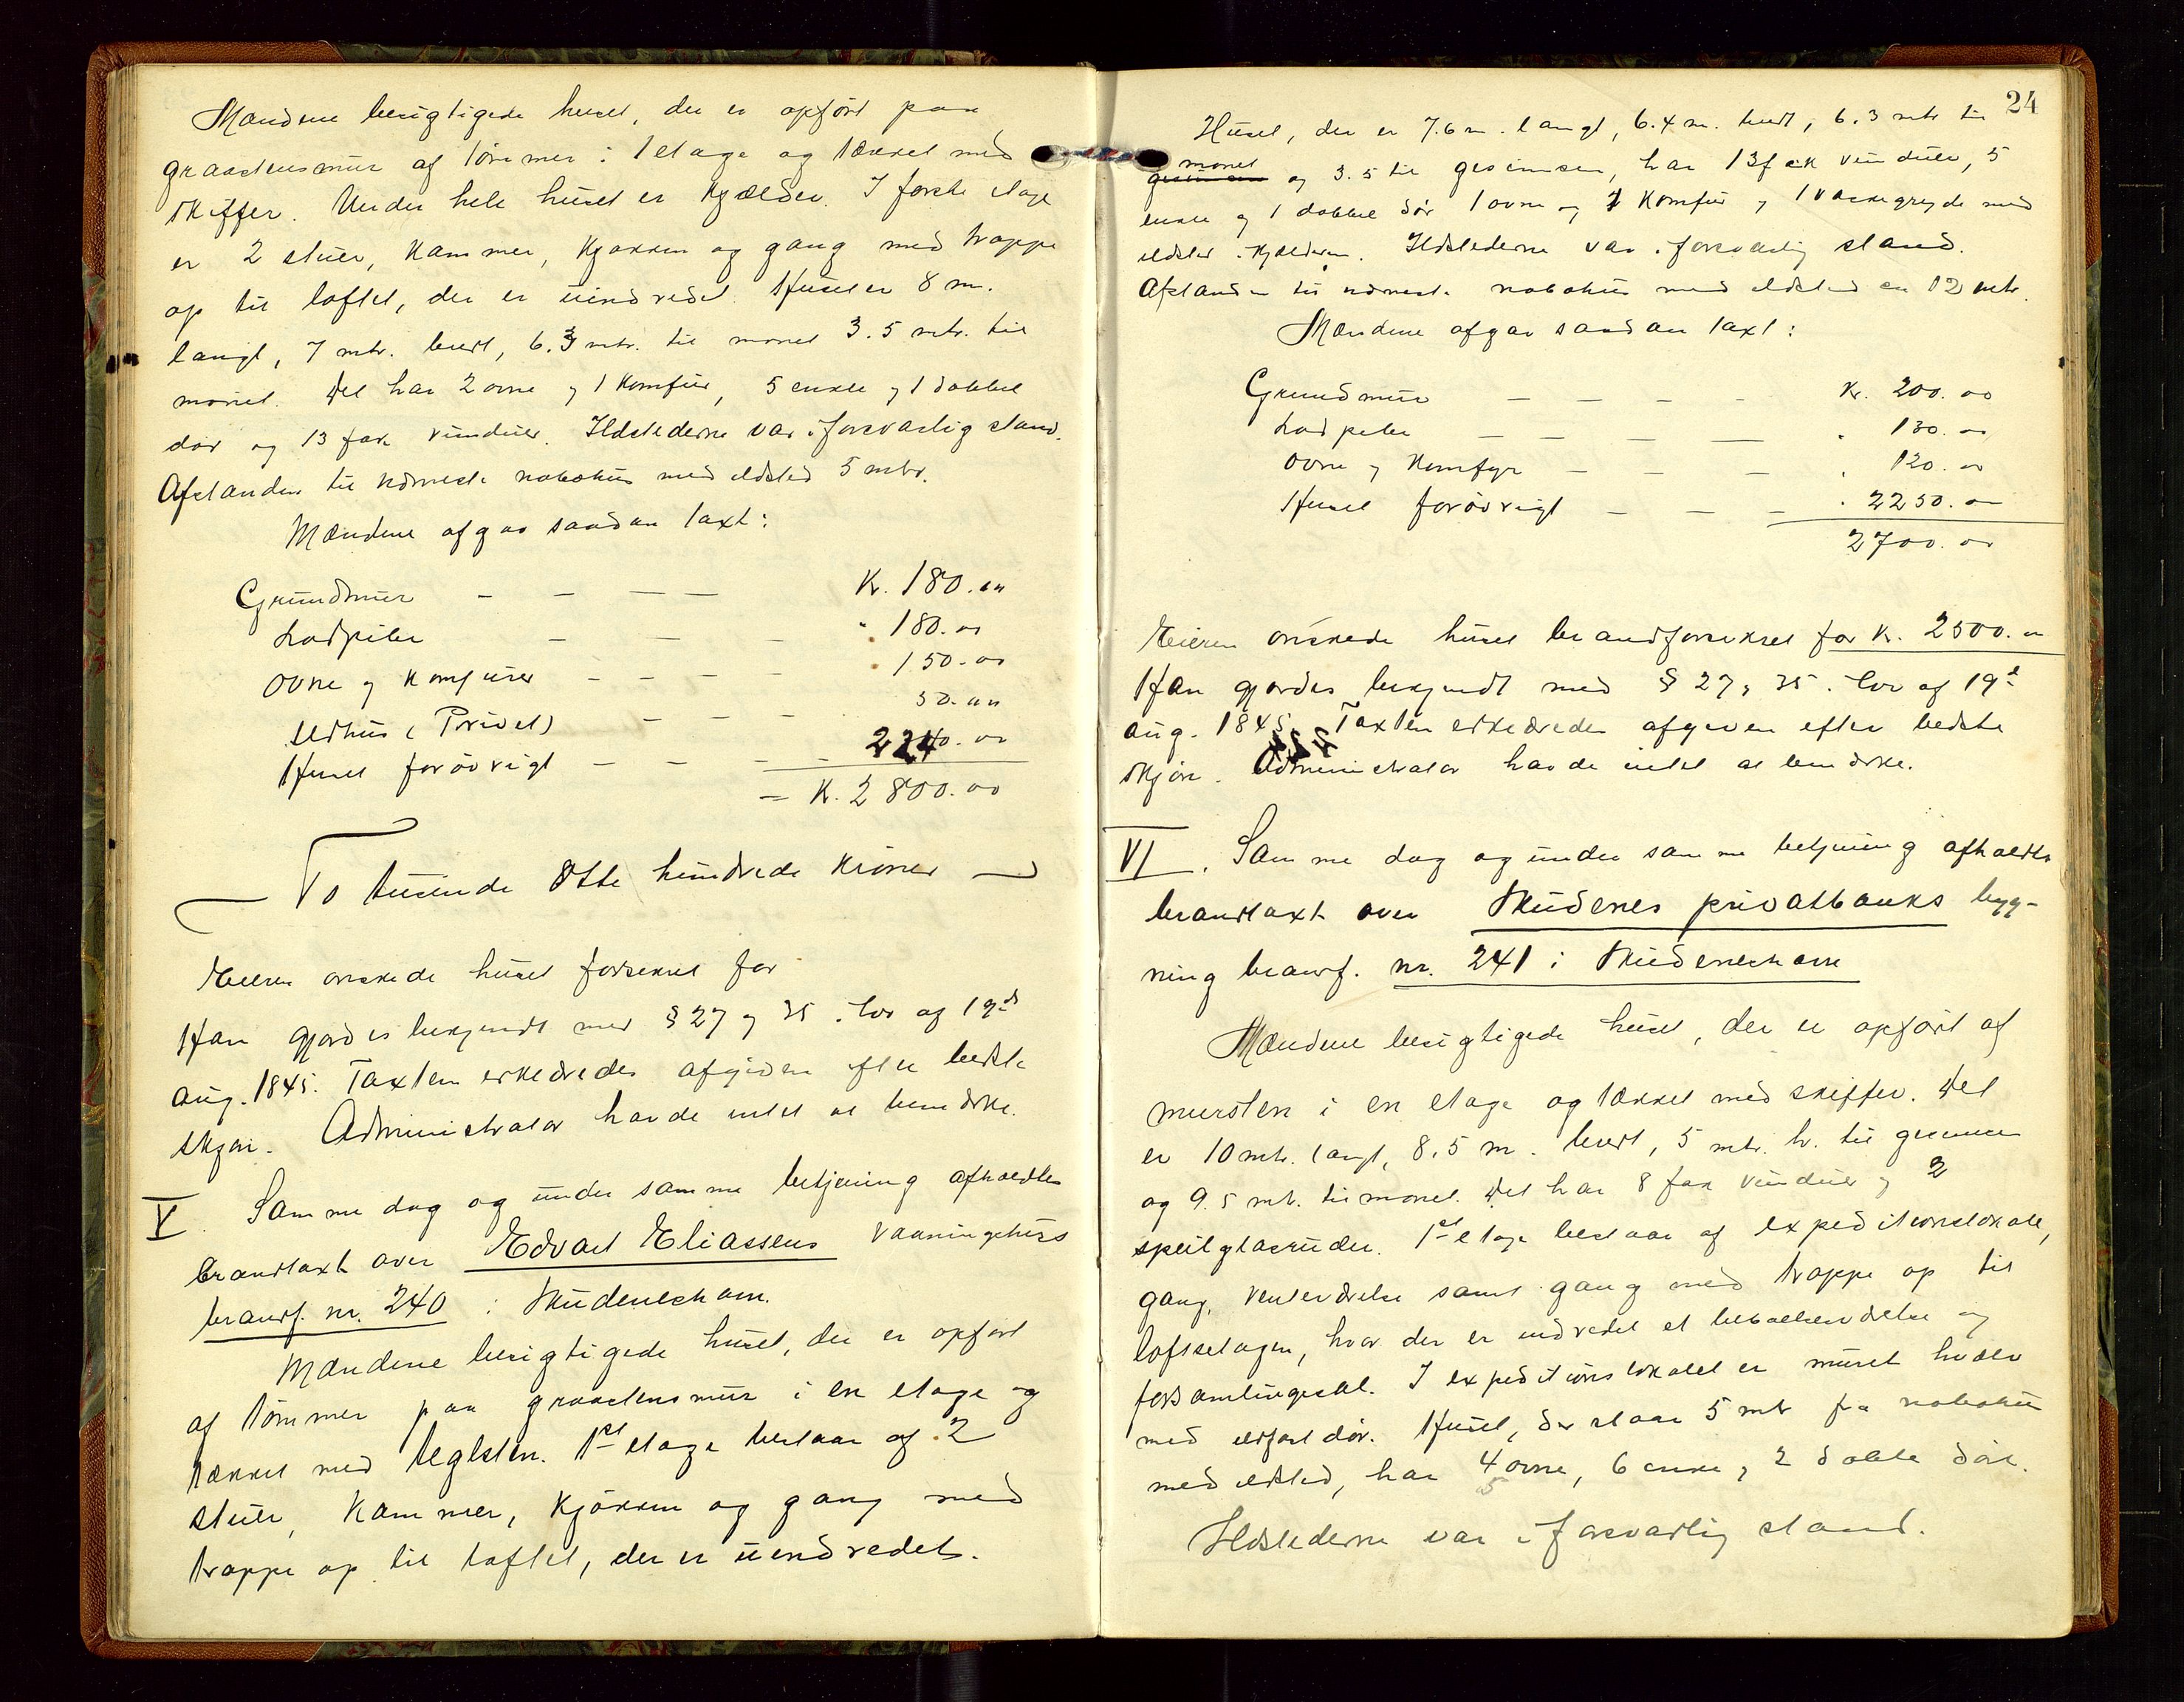 Mændene besigtigede huset, der er opført paa
graastensmur af tømmer i 1 etage og tækket med
skiffer. Under hele huset er kjælder. I første etage
er 2 stuer, kammer, kjøkken og gang med trappe
op til loftet, der er uindredet. Huset er 8 m.
langt, 7 mtr. bredt, 6.3 mtr. til mønet 3.5 mtr. til
mønet. Det har 2 ovne og 1 komfur, 5 enkle og 1 dobbel
dør og 13 fax vinduer. Ildstederne var i forsvarlig stand.
Afstanden til nærmeste nabohus med ildsted 5 mtr.
Mændene afgav saadan taxt:
Grundmur — — — — Kr. 180.00
Lodpiber — — — " 180.00
Ovne og komfurer — — — — " 150.00
Udhus (Privet) — — — 50.00
Huset forøvrigt — — — — 2240.00
= Kr. 2800.00
— To tusinde Otte hundrede kroner —
Eieren ønskede huset forsekret for
Han gjordes bekjendt med § 27 og 35 i lov af 19de
Aug. 1845. Taxten erklæredes afgiven efter bedste
skjøn. Administrator havde intet at bemærke.
V. Samme dag og under samme betjening afholdtes
brandtaxt over Edvart Eliassens vaaningshus
brandf. nr. 240 i Skudeneshavn.
Mændene besigtigede huset, der er opført
af tømmer paa graastensmur i en etage og
tækket med teglsten. 1ste etage bestaar af 2
stuer, kammer, kjøkken og gang med
trappe op til loftet, der er uindredet.
24
Huset, der er 7.6 m. langt, 6.4 m. bredt, 6.3 mtr til
mønet
og 3.5 til gesimsen, har 13 fak vinduer, 5
enkle og 1 dobbel dør 1 ovn og 1 komfur og 1 vaskegryde med
ildsted i kjælderen. Ildstederne var i forsvarlig stand.
Afstanden til nærmeste nabohus med ildsted er 12 mtr.
Mændene afgav saadan taxt:
Grundmur — — — — Kr. 200.00
Lodpiber — — — — " 130.00
Ovne og Komfyr — — — " 120.00
Huset forøvrigt — — — " 2250.00
2700.00
Eieren ønskede huset brandforsekret for Kr. 2500.00
Han gjordes bekjendt med § 27 og 35 i lov af 19de
Aug. 1845. Taxten erklæredes afgiven efter bedste
skjøn. Administrator havde intet at bemærke.
VI. Samme dag og under samme betjening afholdtes
brandtaxt over Skudenes privatbanks byg-
ning brandf. nr. 241 i Skudeneshavn
Mændene besigtigede huset, der er opført af
mursten i en etage og tækket med skiffer. Det
er 10 mtr. langt, 8.5 m. bredt, 5 mtr. h. til gesimsen
og 9.5 mt. til mønet. Det har 8 fax vinduer og 2
speilglasruder. 1ste etage bestaar af expeditionslokale,
gang, venteværelse samt gang med trappe op til
loftsetagen, hvor der er indredet et beboelsesværelse og
forsamlingssal. I expeditionslokalet er muret hvælv
med ildfast dør. Huset, der staar 5 mtr fra nabohus
med ildsted, har 4 ovne, 6 enkle og 2 dobble døre.
5
Ildstederne var i forsvarlig stand.